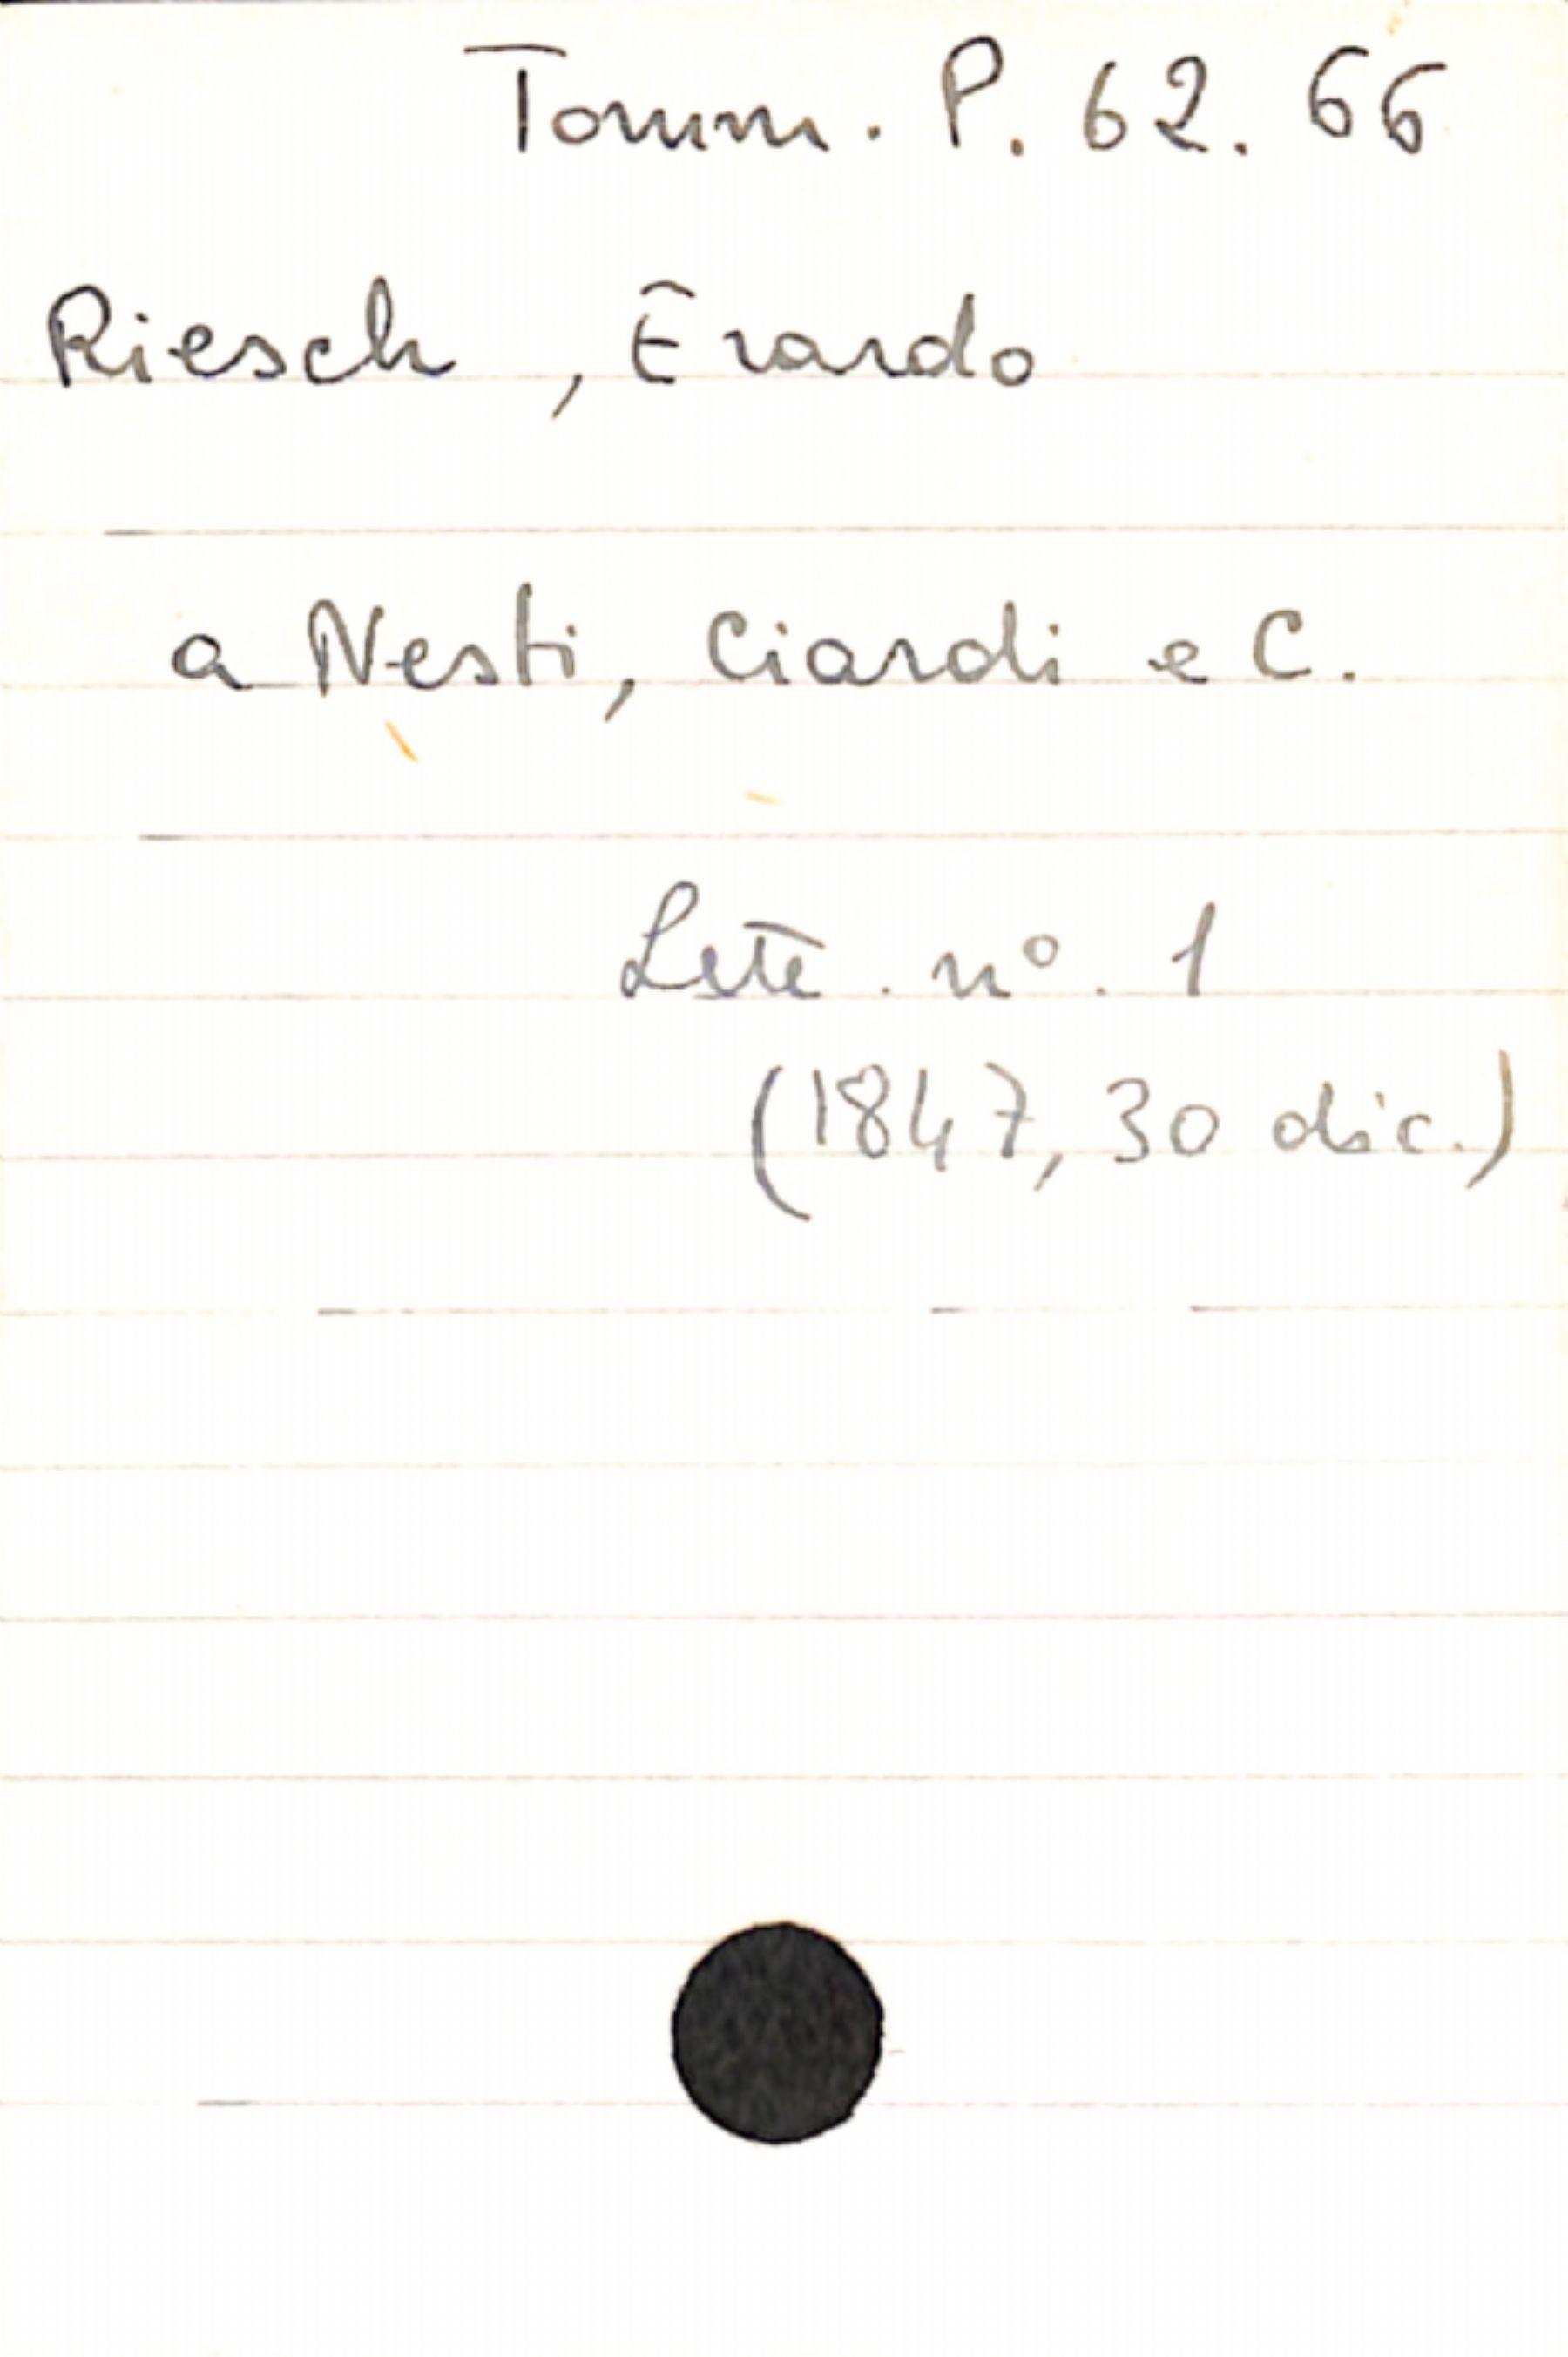 Tomm. P. 62. 66
Riesch, Erardo
a Nesti, Ciardi e C.
Lett. n°. 1
(1847, 30 dic.)